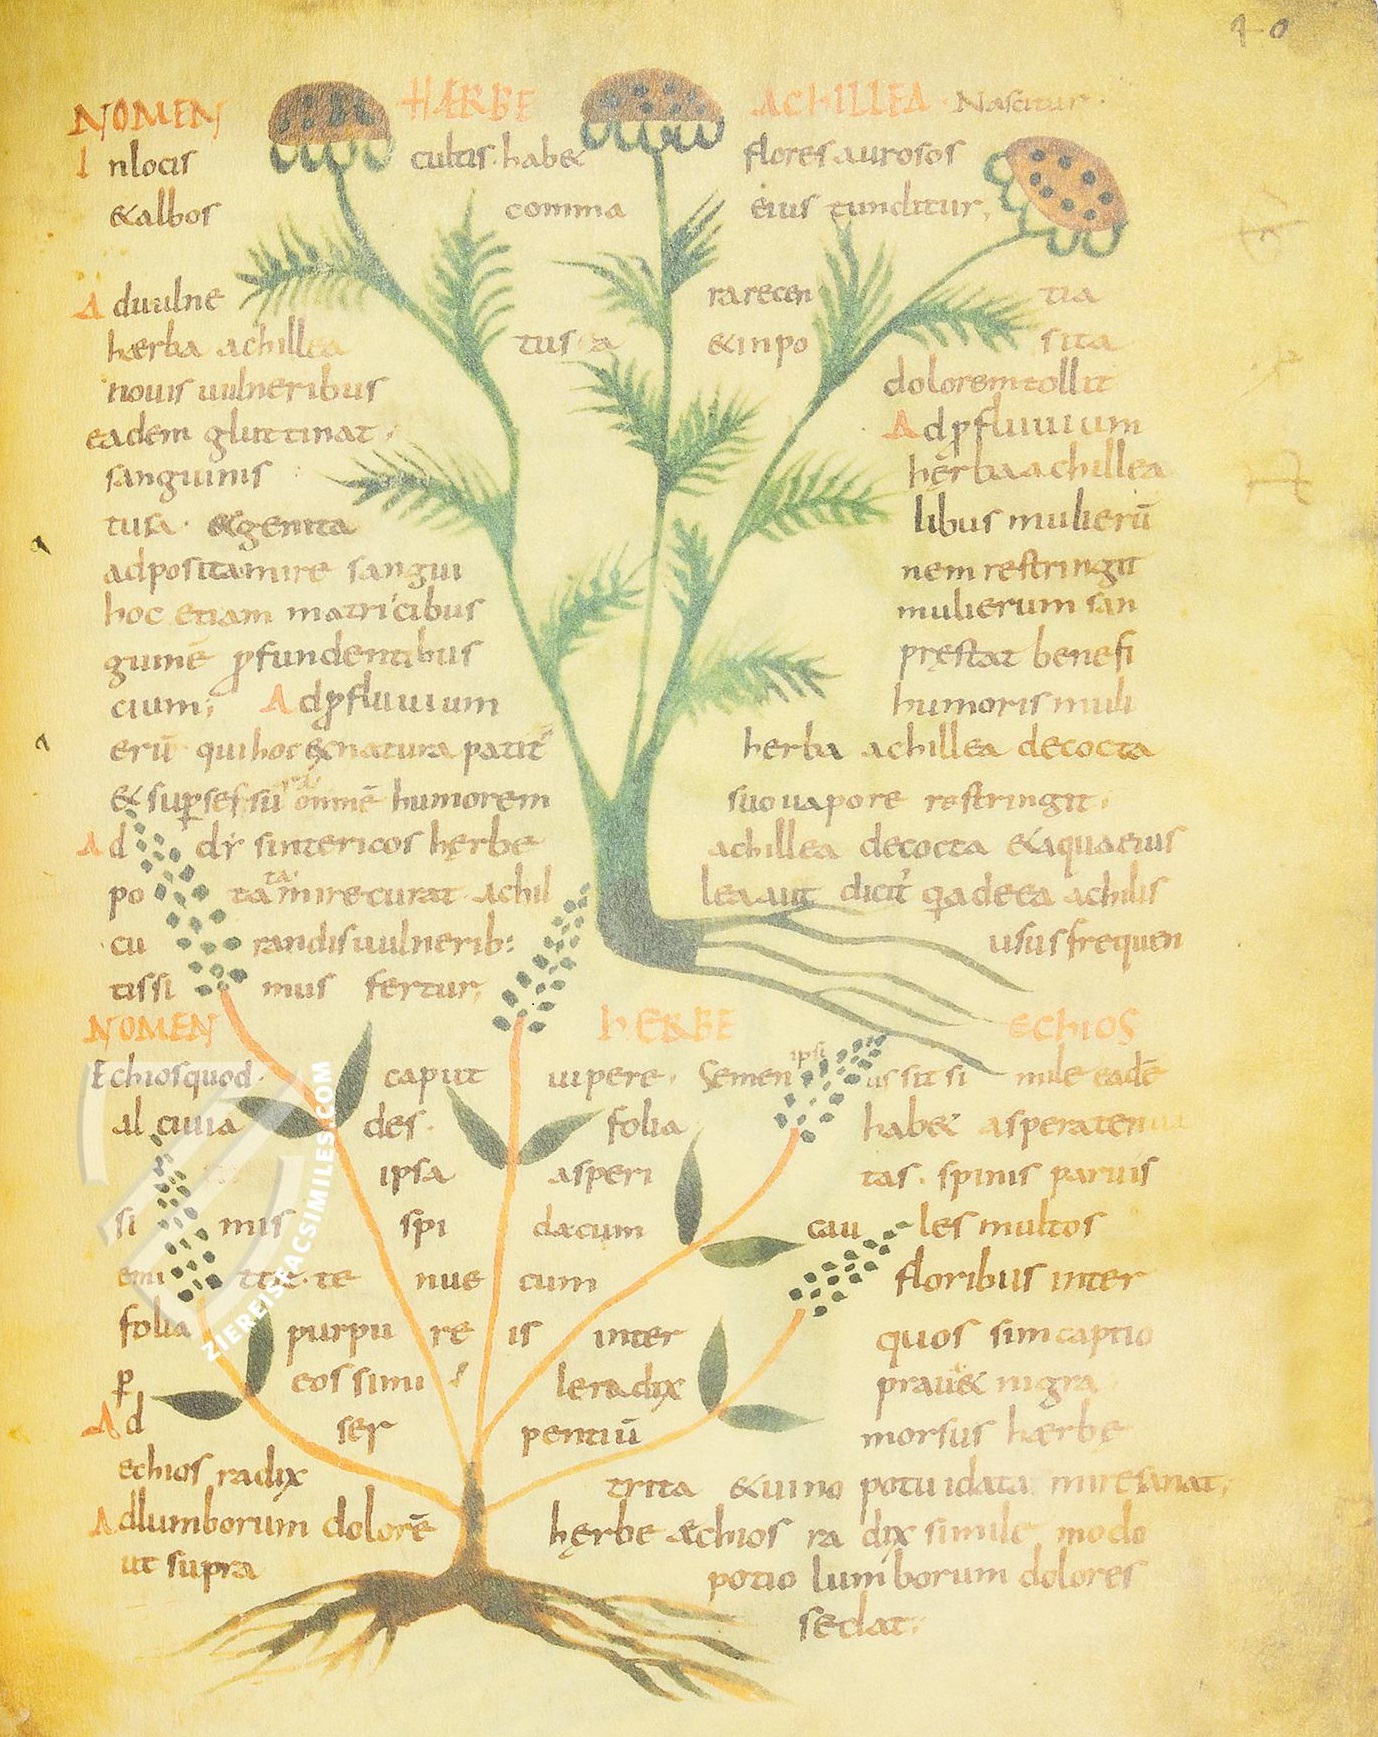 40
NOMEN HÆRBE ACHILLEA · Nascitur ·
Inlocis cultis · hab& flores aurosos
&albos comma eius tunditur,
Aduulne rarecen tia
hærba achillea tus a &inpo sita
nouis uulneribus dolorem tollit
eadem gluttinat · Adꝓfluuium
sanguinis hęrba achillea
tusa · &genita libus mulierū
adpositamire sangui nem restringit
hoc etiam matricibus mulierum san
guinē ꝓfundentibus pręstat benefi
cium; Adꝓfluuium humoris muli
erū quihoc exnatura patit herba achillea decocta
&suꝑ sessū omnē humorem suo uapore restringit ·
Ad dr̄ sintericos hęrbe achillea decocta &aquaeius
po tata mire curat Achil lea aut dicit' qa de ea achilis
cu randisuulnerib: usus frequen
tissi mus fertur;
NOMEN HERBE ECHIOS
Echiosquod caput uipere · Semen ipsius sit si mile eadē
al cuiia des · folia hab& asperaten
ipsa asperi tas · spinis paruis
si mis spi dacum cau les multos
emi ttit · te nue cum floribus inter
folia purpu re is inter quos sim captio
ꝑ eos simi leradix prau& nigra
Ad ser pentiū morsus hærbę
echios radix trita &uino potuidata miresanat;
Adlumborum dolorē hęrbe æchios ra dix simile modo
ut supra potio lumborum dolores
sedat;
ZIEREISFACSIMILES.COM